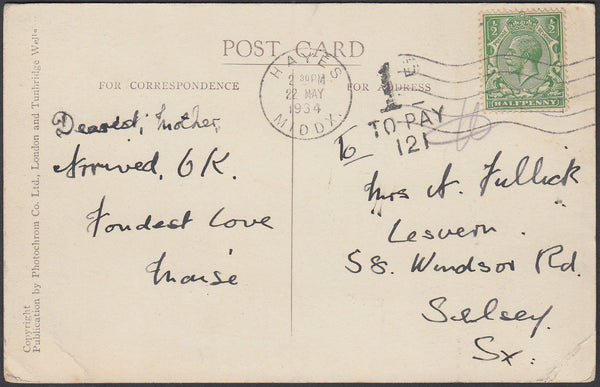 POST CARD
FOR CORRESPONDENCE
FOR ADDRESS
Copyright
Publication by Photochrom Co. Ltd., London and Tunbridge Wells
HAYES
2 30PM
22 MAY
1934
MIDDX.
1D
TO PAY
121
½ ½
HALFPENNY
Dearest, Mother,
Arrived, OK.
Fondest Love
Maise
To
Mrs A. Fullick
Lesvern.
58. Windsor Rd.
Selsey.
Sx.